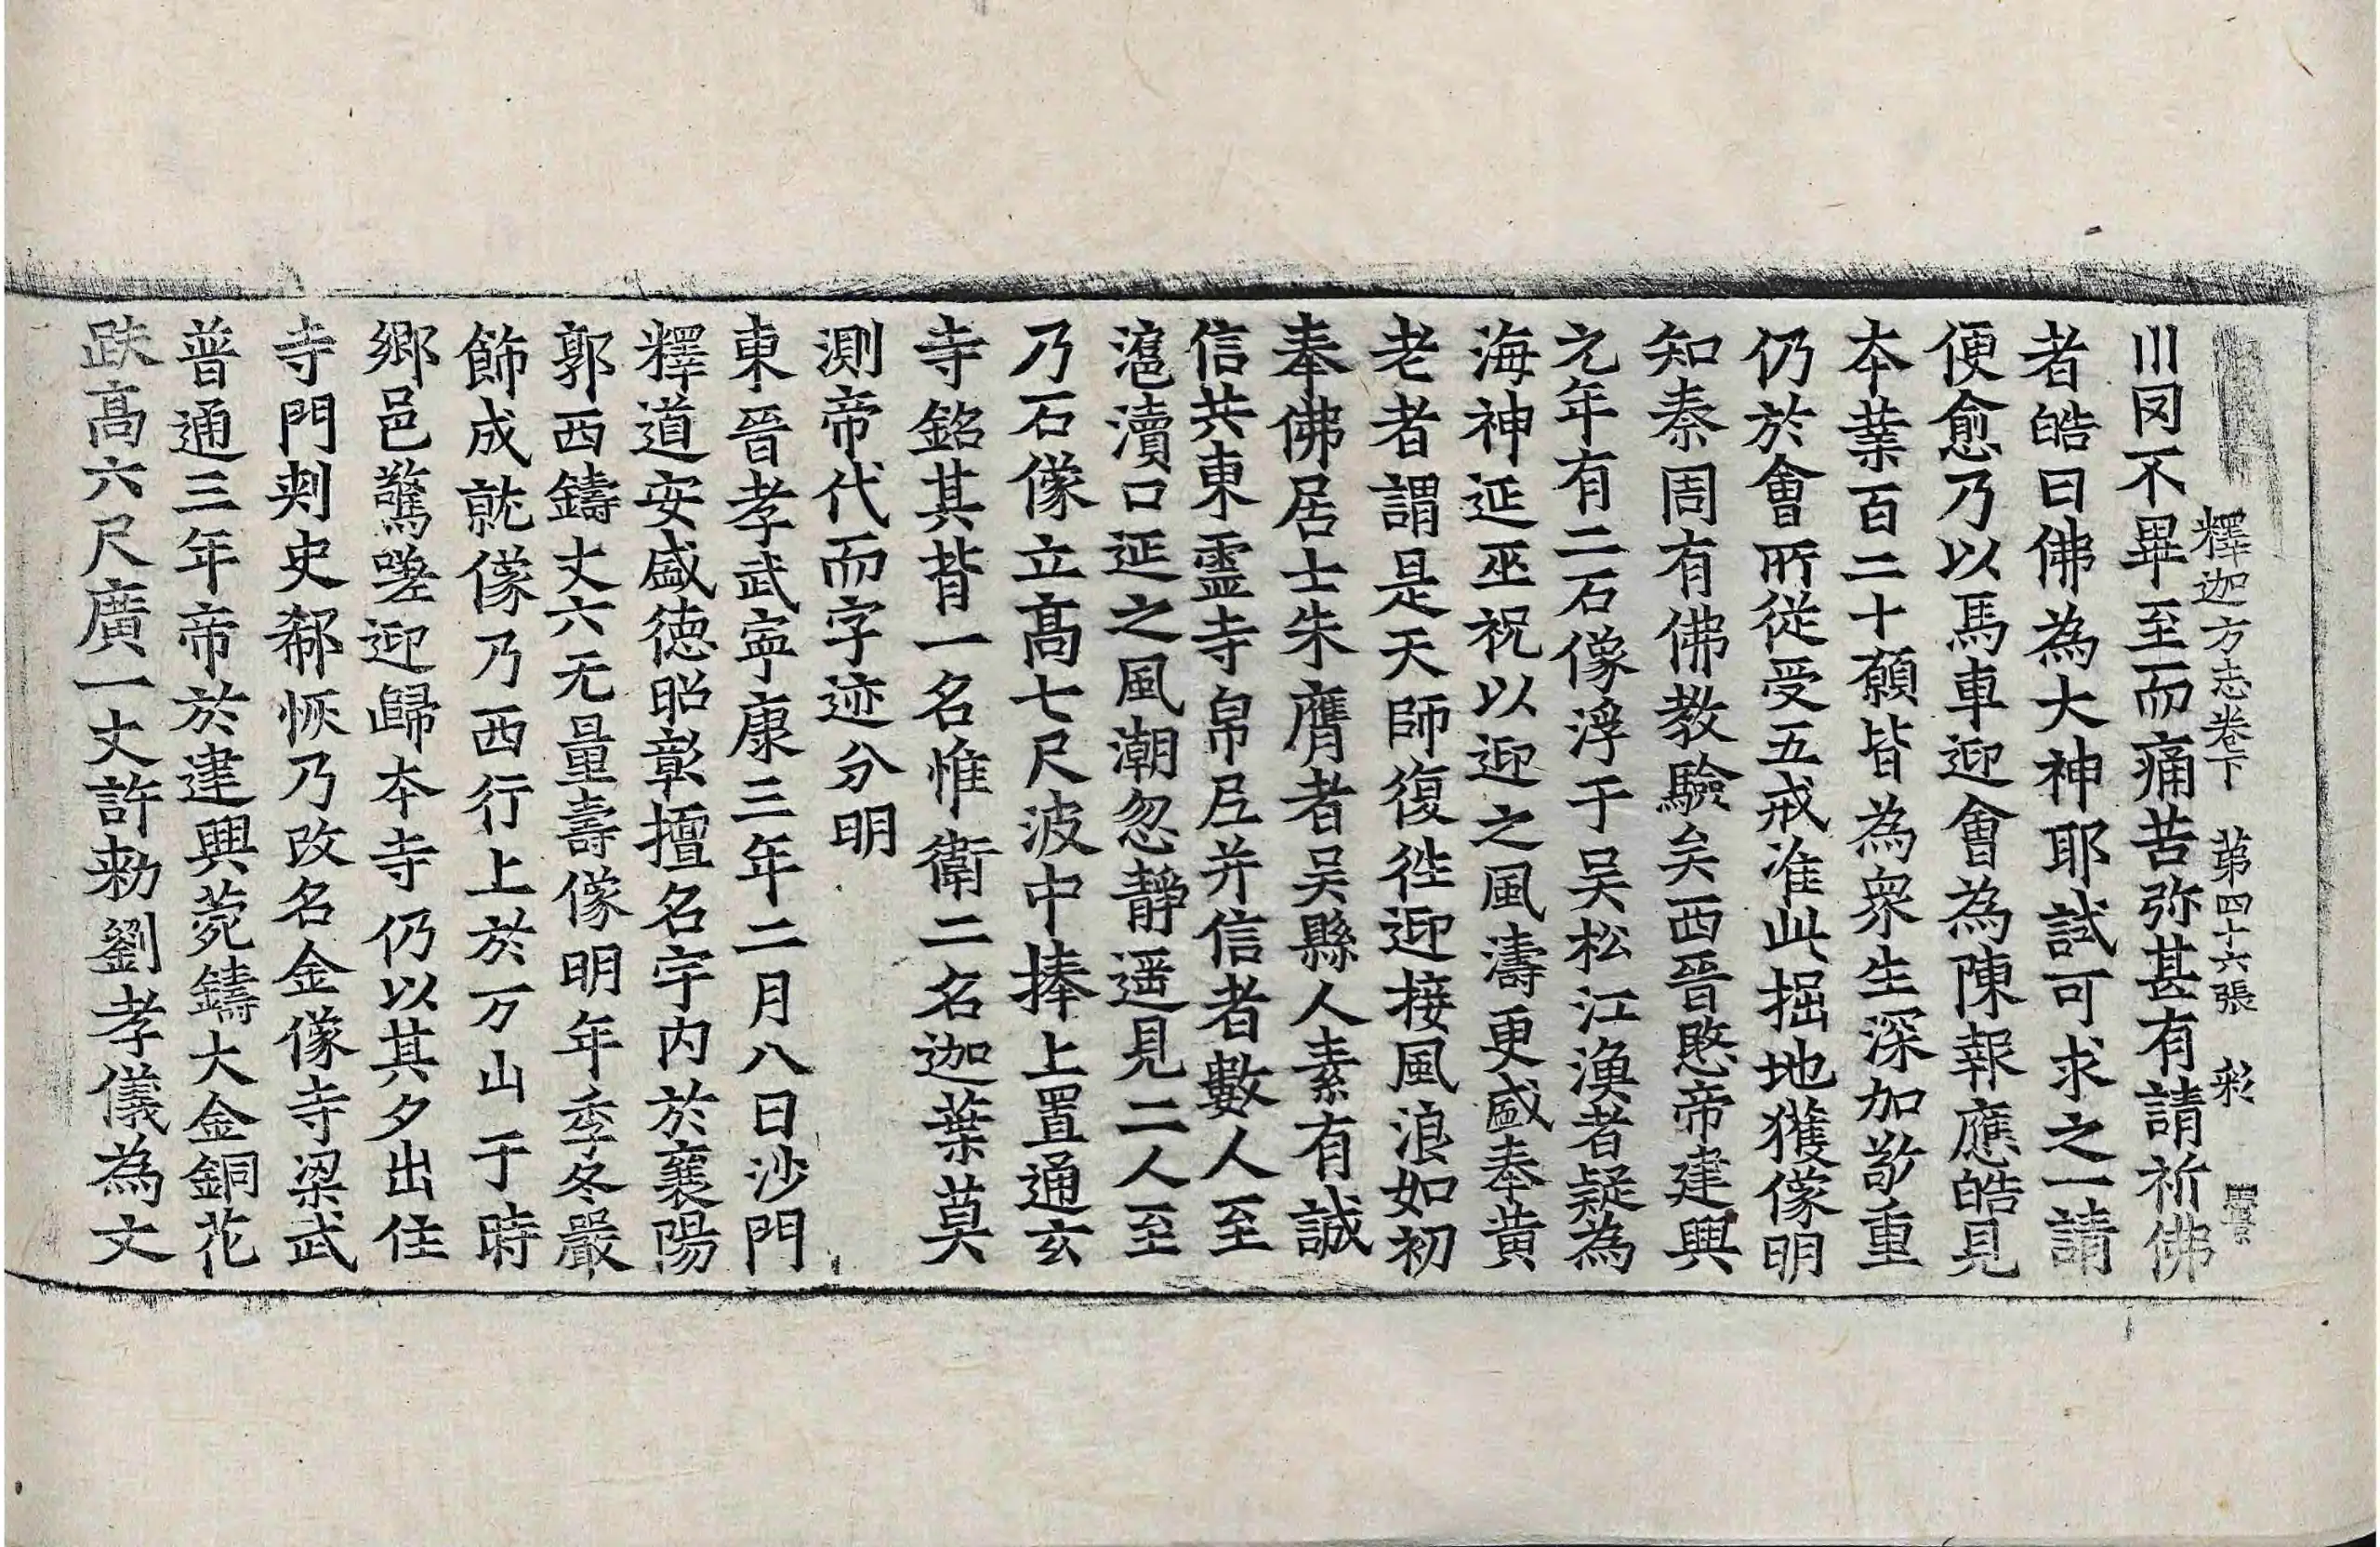 釋迦方志卷下 第四十六張 彩
川罔不畢至而痛苦弥甚有請祈佛
者皓曰佛為大神耶試可求之一請
便愈乃以馬車迎會為陳報應皓見
本業百二十願皆為衆生深加敬重
仍於會所從受五戒准此掘地獲像明
知秦周有佛教驗矣西晉愍帝建興
元年有二石像浮于吴松江漁者疑為
海神延巫祝以迎之風濤更盛奉黄
老者謂是天師復徃迎接風浪如初
奉佛居士朱膺者吴縣人素有誠
信共東靈寺帛尼并信者數人至
滬瀆口延之風潮忽靜遥見二人至
乃石像立髙七尺波中捧上置通玄
寺銘其背一名惟衛二名迦葉莫
測帝代而字迹分明
東晉孝武寧康三年二月八日沙門
釋道安盛德昭彰擅名宇内於襄陽
郭西鑄丈六无量壽像明年季冬嚴
飾成就像乃西行上於万山于時
鄉邑驚嗟迎歸本寺仍以其夕出住
寺門刾史郗恢乃改名金像寺梁武
普通三年帝於建興菀鑄大金銅花
趺髙六尺廣一丈許勑劉孝儀為文